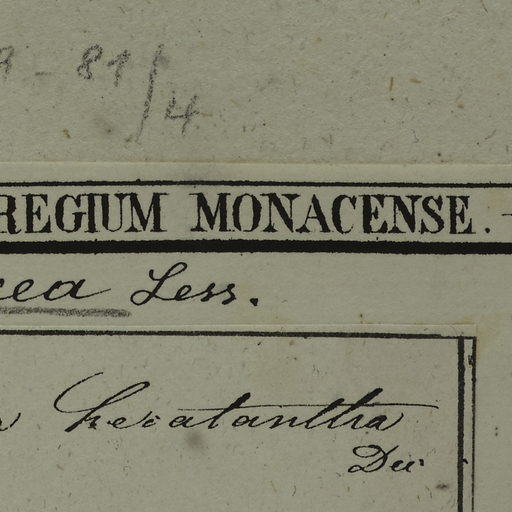 9 - 81/4
REGIUM MONACENSE. -
cea Less.
Hecatantha